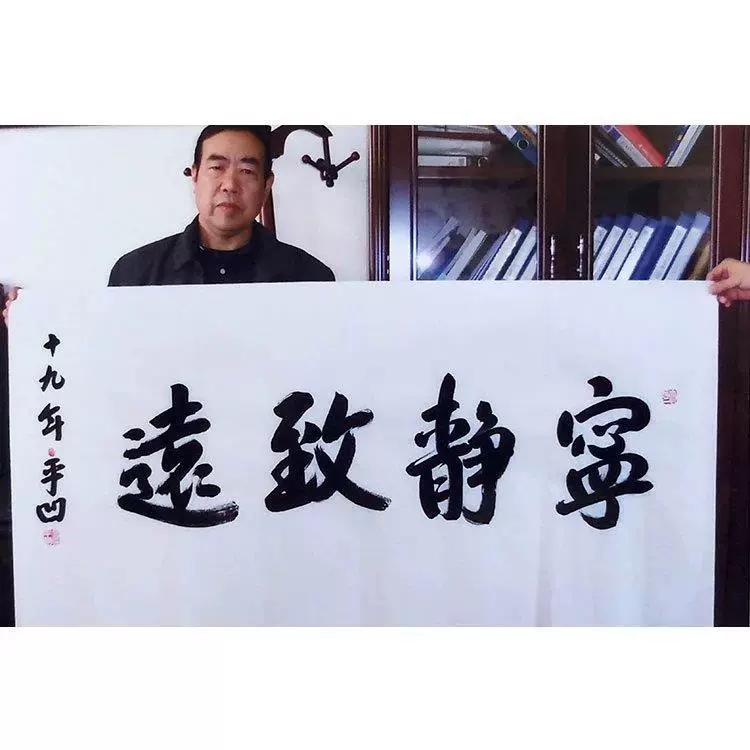 寧靜致遠
十九年平凹